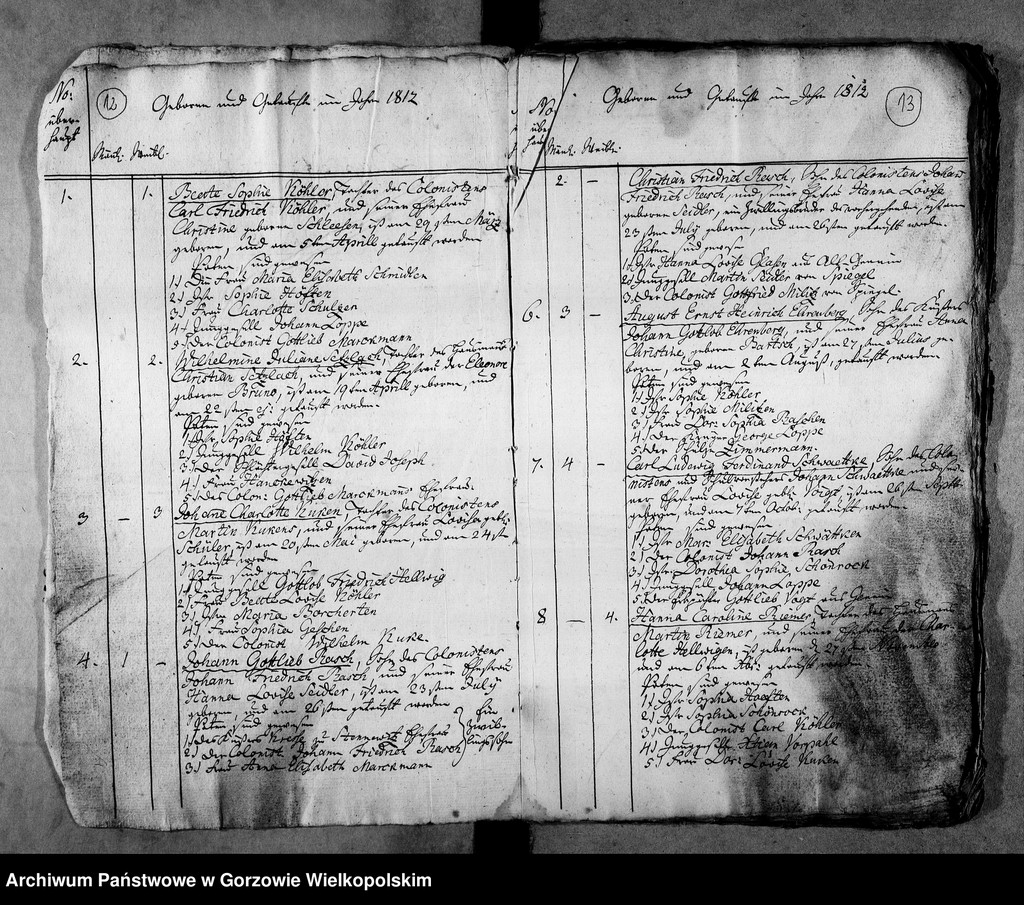 No:
über-
haupt
12
Geboren und Getauft im Jahr 1812
Männl. Weibl.
1. 1. Beate Sophie Köhler, Tochter des Colonistens
Carl Friedrich Köhler, und seiner Ehefrau
Christine geborene Schleesen, ist am 29sten März
geboren, und am 5ten Aprill getauft worden
Paten sind gewesen
1) Die Frau Maria Elisabeth Schmidten
2) Jfr. Sophie Höften
3) Frau Charlotte Schulzen
4) Junggesell Johann Loppe
5) Der Colonist Gottlieb Marckmann
2. 2. Wilhelmine Juliane Setzlach, Tochter des
Christian Setzlach, und seiner Ehefrau der Eleonore
geboren Bruno, ist am 19ten Aprill geboren, und
am 22sten getauft worden.
Paten sind gewesen
1) Jfr. Sophie Höften
2) Junggesell Wilhelm Köhler
3) Der David Joseph
4) Frau
5) des Colon: Gottlieb Marckmans Ehefrau.
3 – 3 Johane Charlotte Kuken, Tochter des Colonistens
Martin Kukens, und seiner Ehefrau Lovise geb.
Schuler, ist am 20sten Mai geboren, und am 24st
getauft worden
Paten sind gewesen
1) Junggesell Gottlob Friedrich Hellwig
2) Frau Beate Lovise Köhler
3) Jfr. Maria Borcherten
4) Frau Sophia Geschen
5) Der Colonist Wilhelm Kuke
4. 1 – Johann Gottlieb Rasch, Sohn des Colonistens
Johann Friedrich Rasch, und seiner Ehefrau
Hanna Lovise Seidler, ist am 23sten July
geboren, und am 26sten getauft worden
Paten sind gewesen
1) des zu Stennewitz Ehefrau
2) Der Colonist Johann Friedrich Rasch
3) Frau Anna Elisabeth Marckmann
Ein
Zwil-
lingssohn
No
über
haupt
13
Geboren und Getauft im Jahr 1812
Männl. Weibl.
2. – Christian Friedrich Rasch, Sohn des Colonistens Johann
Friedrich Rasch, und seiner Ehefrau Hanna Lovise
geborene Seidler, ein Zwillingsbruder des vorhergehenden, ist am
23sten July geboren, und am 26sten getauft worden.
Paten sind gewesen
1) Jfr. Hanna Lovise Glasen aus
2) Junggesell Martin Seidler von Spiegel
3) Der Colonist Gottfried Militz von Spiegel.
6. 3 – August Ernst Heinrich Ehrenberg, Sohn des Küsters
Johann Gottlob Ehrenberg, und seiner Ehefrau Hanna
Christine, geboren Bartsch, ist am 27sten Julius ge-
boren, und am 2ten August, getauft worden.
Paten sind gewesen
1) Jfr. Sophie Köhler
2) Jfr. Sophie Militzen
3) Frau Dor: Sophia Raschen
4) Der George Loppe
5) Der Zimmermann.
7. 4 – Carl Ludwig Ferdinand Schwaettke, Sohn des Colo-
nistens und Johann Schwaettke und sei-
ner Ehefrau Lovise geb. Voigt, ist am 26sten Septbr
geboren, und am 7ten Octobr getauft worden
Paten sind gewesen
1) Jfr. Mar: Elisabeth Schwättken
2) Der Colonist Johann Rasch
3) Jfr. Dorothea Sophie Schönrock
4) Junggesell Johann Loppe
5) Der Gottlieb Voigt aus
8 – 4. Hanna Caroline Riemer, Tochter des
Martin Riemer, und seiner Ehefrau der Char-
lotte Hellwigen, ist geboren d. 27sten
und am 6ten getauft worden
Paten sind gewesen
1) Jfr. Sophia Haeften
2) Jfr. Sophia Schönrock
3) Der Colonist Carl Köhler
4) Junggesell Vorpahl
5) Frau Dor: Lovise Kuken
Archiwum Państwowe w Gorzowie Wielkopolskim